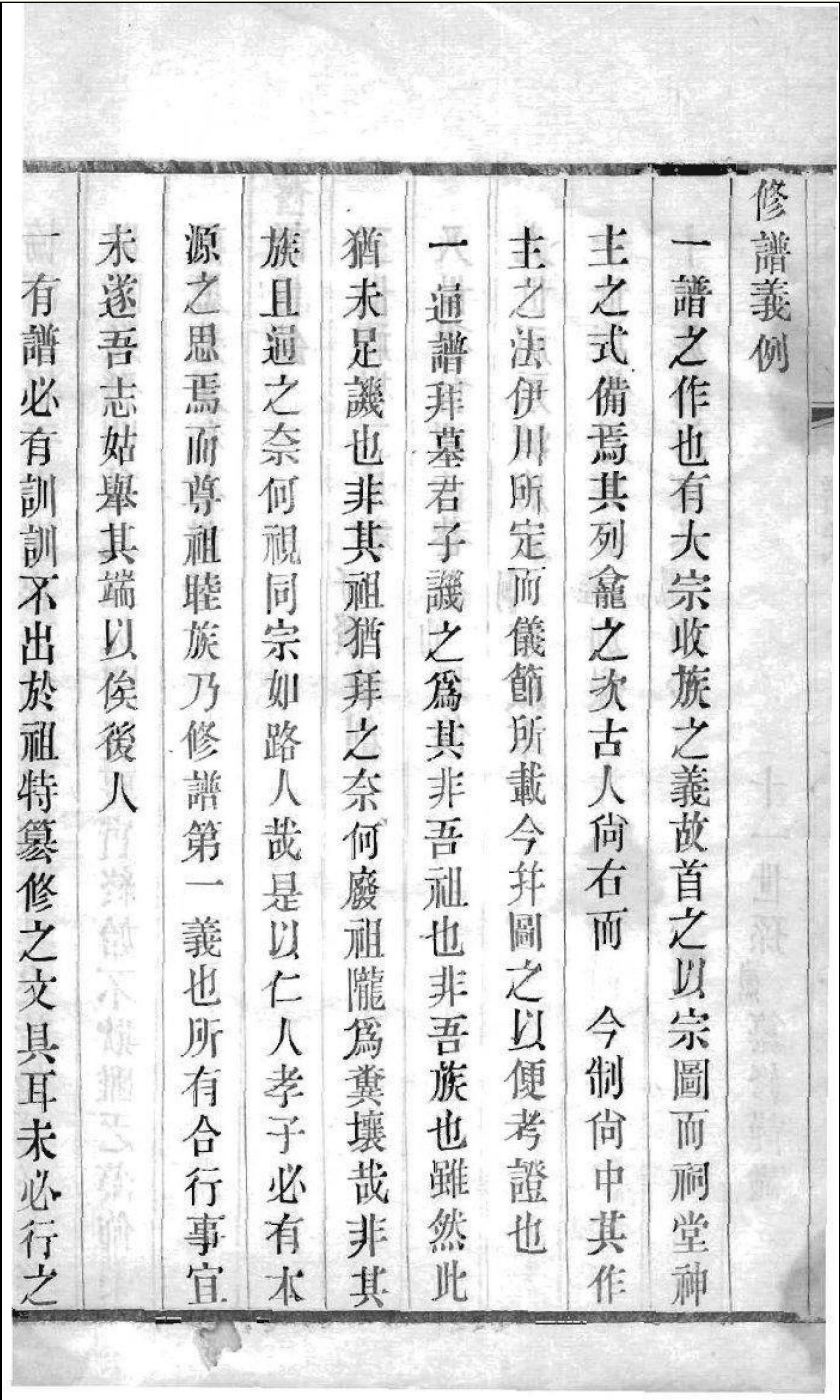 修譜義例
一譜之作也有大宗收族之義故首之以宗圖而祠堂神
主之式備焉其列龕之次古人尙右而　今制尙中其作
主之法伊川所定而儀節所載今幷圖之以便考證也
一通譜拜墓君子譏之爲其非吾祖也非吾族也雖然此
猶未足譏也非其祖猶拜之奈何廢祖隴爲糞壤哉非其
族且通之奈何視同宗如路人哉是以仁人孝子必有本
源之思焉而尊祖睦族乃修譜第一義也所有合行事宜
未遂吾志姑舉其端以俟後人
一有譜必有訓訓不出於祖特纂修之文具耳未必行之